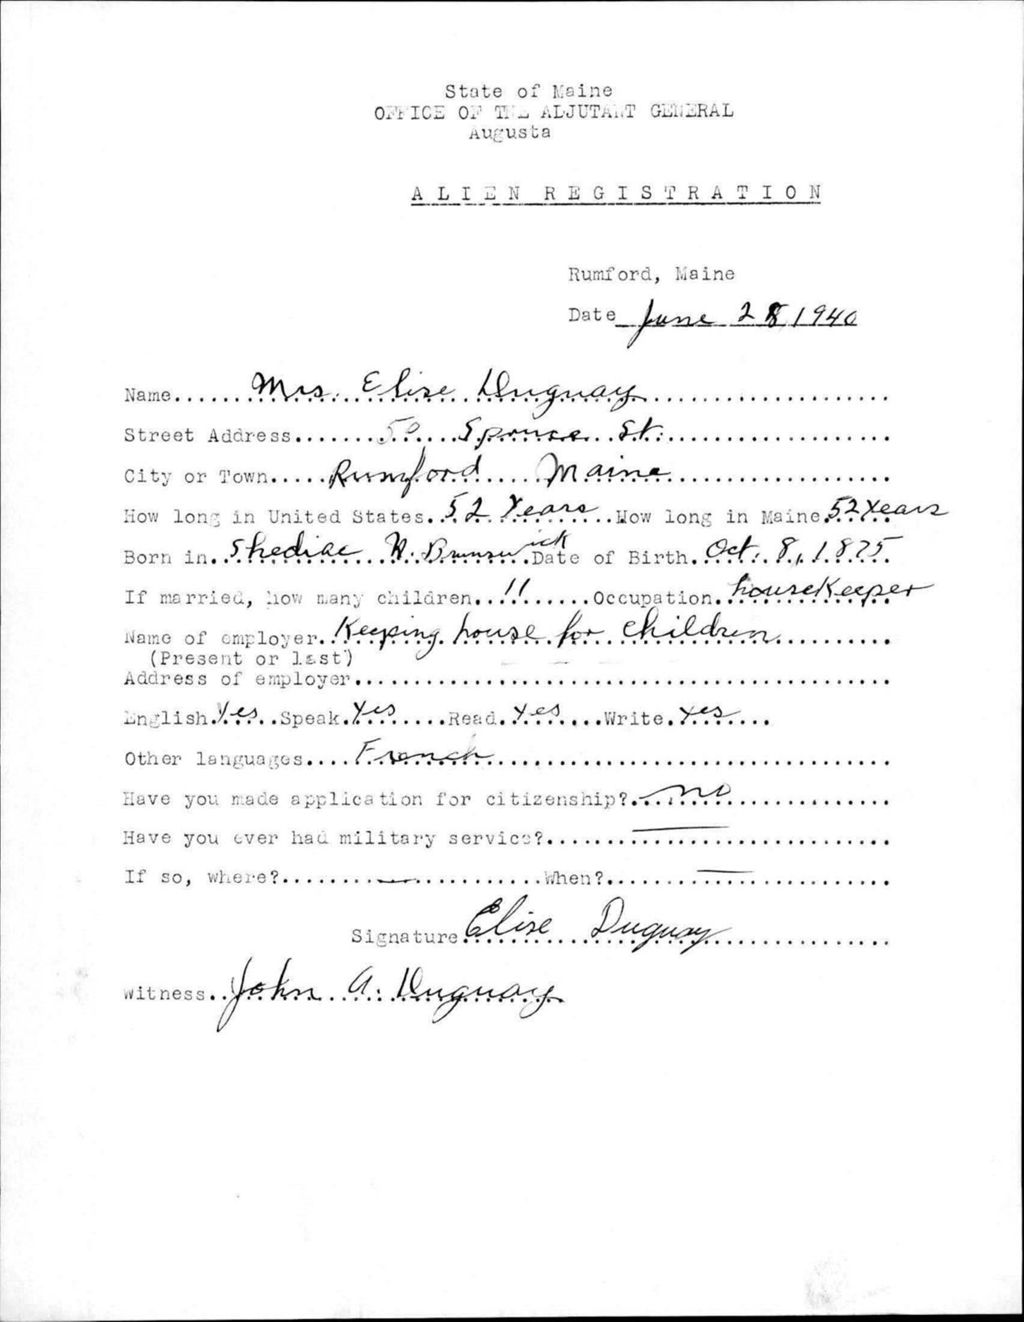 State of Maine
OFFICE OF THE ADJUTANT GENERAL
Augusta
ALIEN REGISTRATION
Rumford, Maine
Date June 28 1940
Name.......Mrs. Elise Duguay.....................
Street Address.......50....Spruce St....................
City or Town.....Rumford.....Maine...................
How long in United States..52 Years...How long in Maine 52 Years
Born in..Shediac N. Brunswick Date of Birth.Oct. 8, 1875
If married, how many children...11......Occupation.housekeeper
Name of employer..Keeping house for children..........
(Present or last)
Address of employer.............................................
English.Yes..Speak.Yes.....Read.Yes....Write.Yes....
Other languages....French..................................
Have you made application for citizenship?...no..............
Have you ever had military service?.......——..............
If so, where?........—...........When?.......——............
Signature Elise Duguay...............
Witness..John A. Duguay